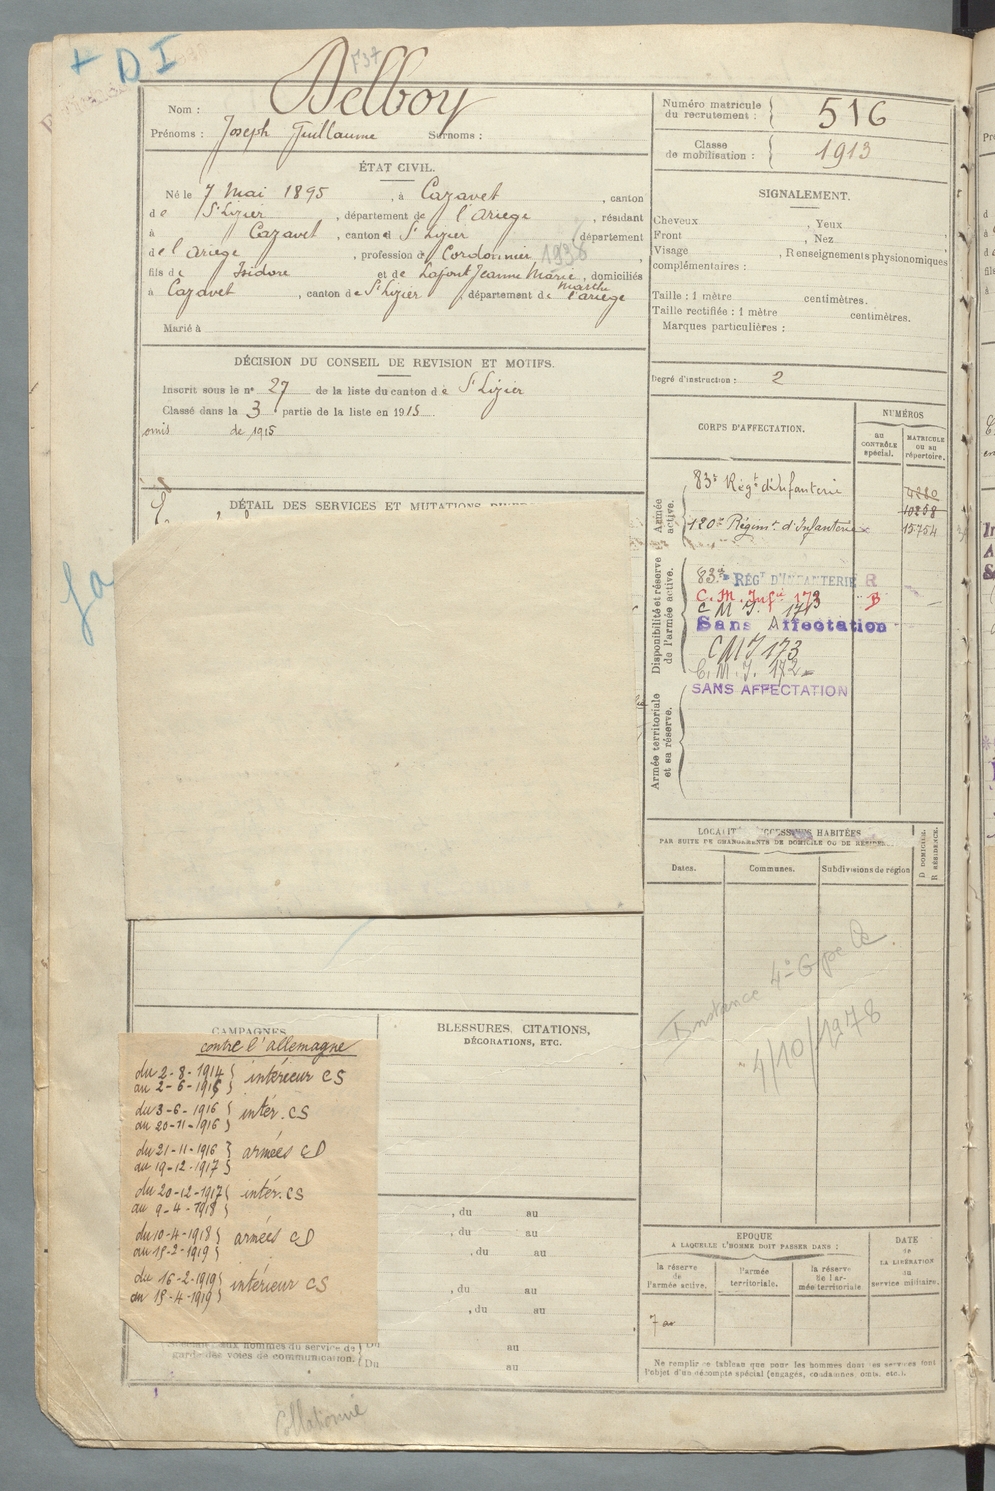 + DI
F37
Nom : Delboy
Prénoms : Joseph Guillaume Surnoms :
Numéro matricule du recrutement : 516
Classe de mobilisation : 1913
ÉTAT CIVIL.
Né le 7 Mai 1895, à Cazavet, canton
de St Lizier, département de l'Ariège, résidant
à Cazavet, canton d St Lizier département
de l'ariège, profession de Cordonnier, 1938
fils de Isidore et de Lafont Jeanne Marie, domiciliés
Marthe
à Cazavet, canton de St Lizier, département de l'ariège
Marié à
SIGNALEMENT.
Cheveux , Yeux
Front , Nez
Visage , Renseignements physionomiques
complémentaires :
Taille : 1 mètre centimètres.
Taille rectifiée : 1 mètre centimètres.
Marques particulières :
Degré d'instruction : 2
DÉCISION DU CONSEIL DE REVISION ET MOTIFS.
Inscrit sous le n° 27 de la liste du canton de St Lizier
Classé dans la 3 partie de la liste en 1915
omis de 1915
DÉTAIL DES SERVICES ET MUTATIONS
CORPS D'AFFECTATION.
NUMÉROS
au CONTRÔLE spécial.
MATRICULE ou au répertoire.
Armée active.
83e Régt d'Infanterie 4280
10258
120e Régimt d'Infanterie 15.754
Disponibilité et réserve de l'armée active.
83e RÉGT D'INFANTERIE R
C. M. Infie 173 B
C M I. 173
Sans Affectation
C M I 173
C. M. I. 172
SANS AFFECTATION
Armée territoriale et sa réserve.
LOCALITÉS SUCCESSIVES HABITÉES
PAR SUITE DE CHANGEMENTS DE DOMICILE OU DE RÉSIDENCE.
D DOMICILE.
R RÉSIDENCE.
Dates.
Communes.
Subdivisions de région
Instance 4e Gpe
4/10/1978
CAMPAGNES
contre l'allemagne
du 2-8-1914
au 2-6-1916 } intérieur CS
du 3-6-1916
au 20-11-1916 } intér. CS
du 21-11-1916
au 19-12-1917 } armées CD
du 20-12-1917
au 9-4-1918 } intér. CS
du 10-4-1918
au 15-2-1919 } armées CD
du 16-2-1919
au 15-4-1919 } intérieur CS
BLESSURES, CITATIONS,
DÉCORATIONS, ETC.
, du au
, du au
, du au
, du au
, du au
Spéciaux aux hommes du service de
garde des voies de communication.
Du au
Du au
EPOQUE
À LAQUELLE L'HOMME DOIT PASSER DANS :
la réserve de l'armée active.
l'armée territoriale.
la réserve de l'armée territoriale
DATE de LA LIBÉRATION du service militaire.
Ne remplir ce tableau que pour les hommes dont les services font
l'objet d'un décompte spécial (engagés, condamnés, omis, etc.).
Collationné